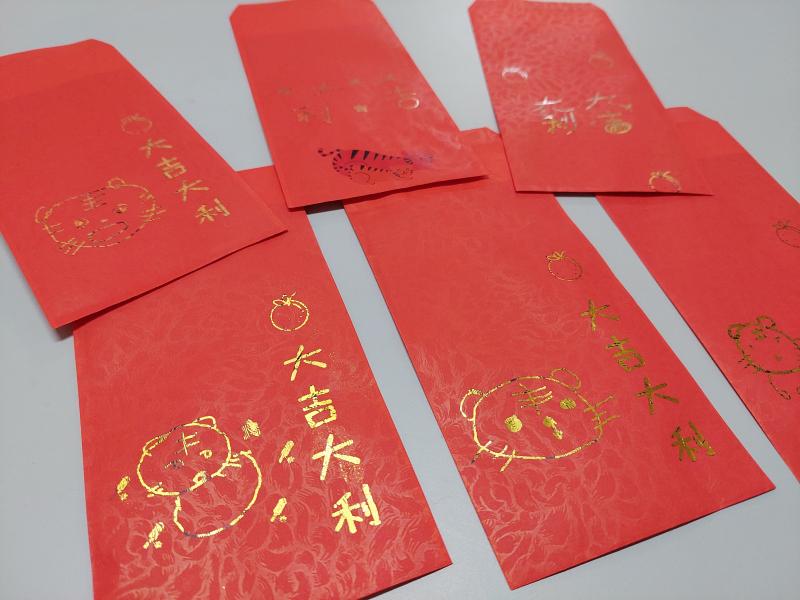 大吉大利
利 吉
大吉
大利
大吉大利
大吉大利